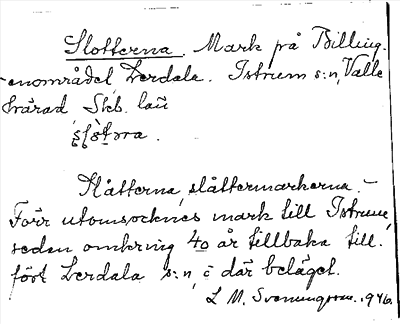 Slotterna. Mark på Billing-
enområdet, Lerdala. Istrum s:n, Valle
härad Skb. län
Slåtterna, slåttermarkerna. –
Förr utomsocknes mark till Istrum,
sedan omkring 40 år tillbaka till-
fört Lerdala s:n, i där beläget.
L. M. Svenungsson. 1946.